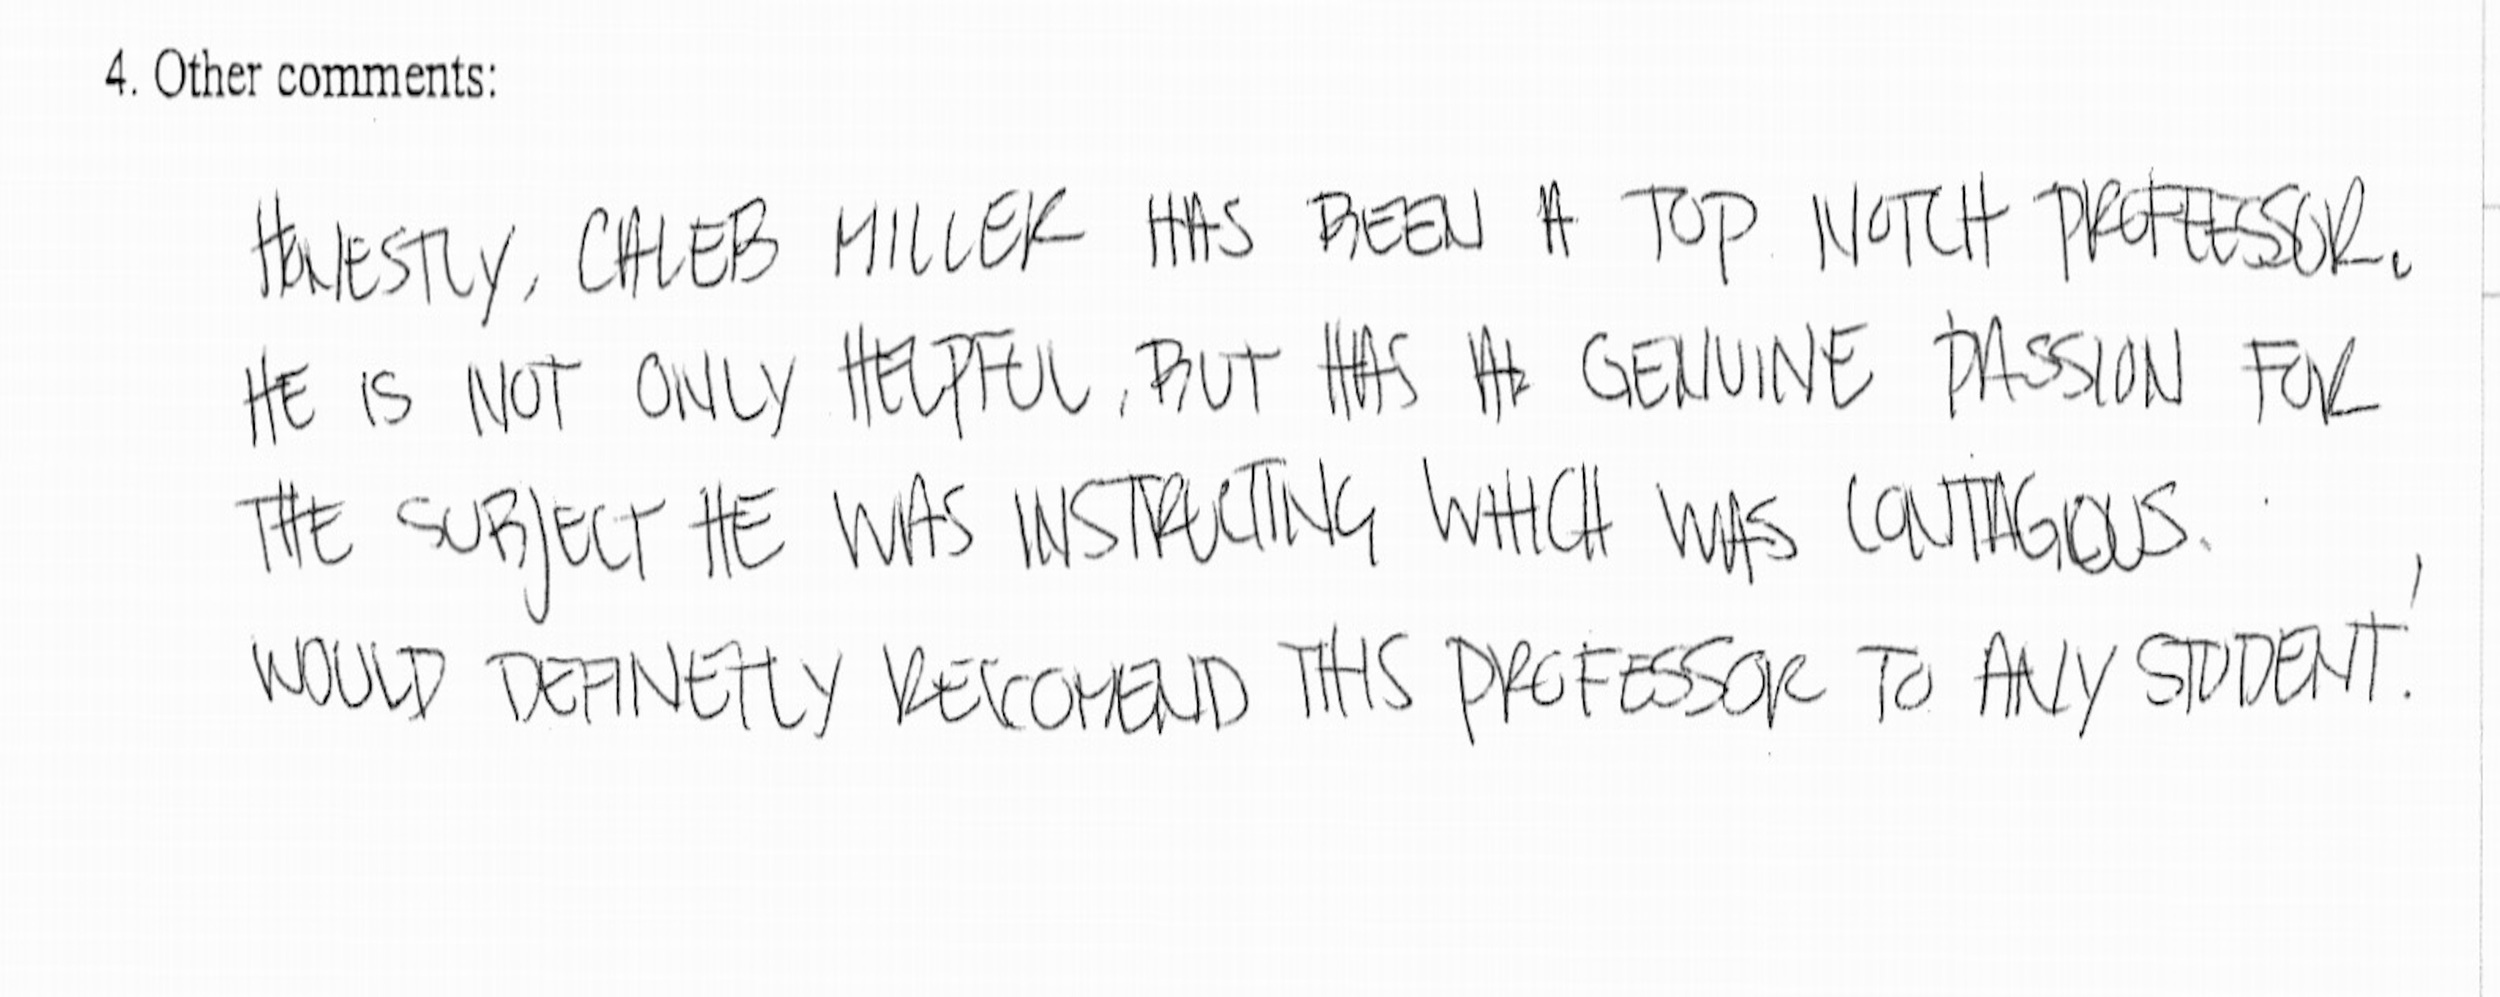 4. Other comments:
HONESTLY, CALEB MILLER HAS BEEN A TOP NOTCH PROFESSOR.
HE IS NOT ONLY HELPFUL, BUT HAS A GENUINE PASSION FOR
THE SUBJECT HE WAS INSTRUCTING WHICH WAS CONTAGIOUS.
WOULD DEFINETLY RECCOMEND THIS PROFESSOR TO ANY STUDENT!